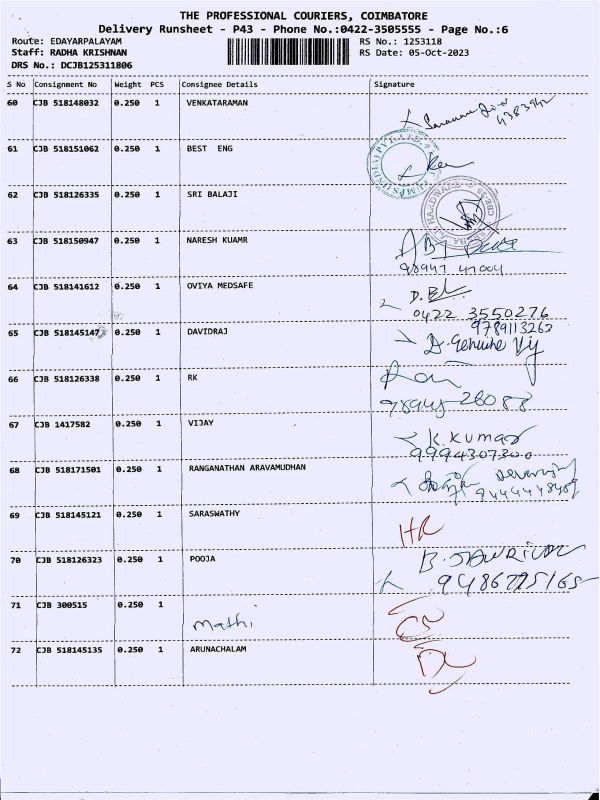 THE PROFESSIONAL COURIERS, COIMBATORE
Delivery Runsheet - P43 - Phone No.:0422-3505555 - Page No.:6
Route: EDAYARPALAYAM RS No.: 1253118
Staff: RADHA KRISHNAN RS Date: 05-Oct-2023
DRS No.: DCJB125311806
S No Consignment No Weight PCS Consignee Details Signature
60 CJB 518148032 0.250 1 VENKATARAMAN
61 CJB 518151062 0.250 1 BEST ENG
62 CJB 518126335 0.250 1 SRI BALAJI
63 CJB 518150947 0.250 1 NARESH KUAMR
64 CJB 518141612 0.250 1 OVIYA MEDSAFE
0422 3550276
65 CJB 518145147 0.250 1 DAVIDRAJ
9789113262
66 CJB 518126338 0.250 1 RK
67 CJB 1417582 0.250 1 VIJAY
K.KUMAR
9994307300
68 CJB 518171501 0.250 1 RANGANATHAN ARAVAMUDHAN
69 CJB 518145121 0.250 1 SARASWATHY
70 CJB 518126323 0.250 1 POOJA
71 CJB 300515 0.250 1
Mathi
72 CJB 518145135 0.250 1 ARUNACHALAM